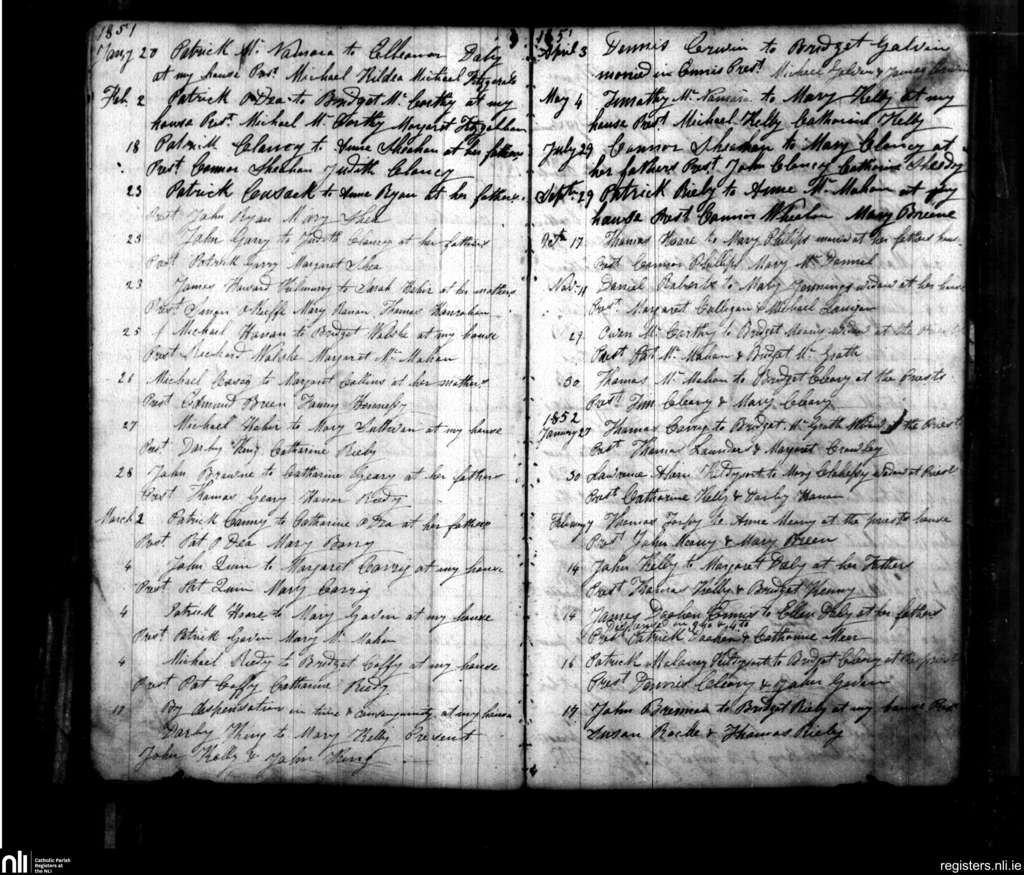 1851
Jany 20 Patrick Mc Namara to Elleanor Daly
at my house Prest Michael Kildea Michael Fitzgerald
Feb. 2 Patrick O Dea to Bridget Mc Carthy at my
house Prest. Michael Mc Carthy Margaret
18 Patrick Clancy to Anne Sheehan at her fathers
Prest Connor Sheehan Judith Clancy
23 Patrick Cusack to Anne Ryan at her fathers
Prest John Ryan Mary Shea
23 John Garry to Judith Clancy at her fathers
Prest Patrick Garry Margaret Shea
23 James Howard to Sarah Hehir at her mothers
Prest O Keeffe Mary Hanrahan
25 Michael Hanan to Bridget Walshe at my house
Prest Richard Walshe Margaret Mc Mahon
26 Michael to Margaret Collins at her mothers
Prest Edmund Breen Fanny Hennessy
27 Michael Hehir to Mary Sullivan at my house
Prest Darby King Catharine Reidy
28 John Browne to Catharine Geary at her fathers
Prest Thomas Geary Hanor Reidy
March 2 Patrick Canny to Catharine O Dea at her fathers
Prest Pat O Dea Mary Barry
4 John Quin to Margaret Carrig at my house
Prest Pat Quin Mary Carrig
4 Patrick Hoare to Mary Gavin at my house
Prest Patrick Gavin Mary Mc Mahon
4 Michael Reidy to Bridget Caffy at my house
Prest Pat Caffy Catharine Reidy
17 By dispensation in time & consanguinity at my house
Darby King to Mary Kelly Present
John Kelly & John King
1851
April 3 Dennis to Bridget Galvin
married in Ennis Prest Michael Galvin & James
May 4 Timothy Mc Namara to Mary Kelly at my
house Prest Michael Kelly Catharine Kelly
July 29 Connor Sheehan to Mary Clancy at
her fathers Prest John Clancy Catharine Sheedy
Sept. 29 Patrick Riely to Anne Mc Mahon at my
house Prest Connor Mary Breene
Oct 17 Thomas Hoare to Mary Phillips married at her fathers house
Prest Connor Phillips Mary Mc Donnel
Nov. 11 Daniel Roberts to Mary Jennings widow at her house
Prest Margaret Culligan & Michael Lanigan
29 Owen Mc Carthy to Bridget Meany widow at the
Prest Pat Mc Mahon & Bridget Mc Grath
30 Thomas Mc Mahon to Bridget Cleary at the Priests
Prest Tim Cleary & Mary Cleary
1852
January 27 Thomas Carrig to Bridget Mc Grath the Priests
Prest Thomas & Margaret Crowley
30 Lawrence Hare to Mary widow at Priest
Prest Catharine Kelly & Darby Hanan
February 7 Thomas Torpy to Anne Meany at the priests house
Prest John Meany & Mary Breen
14 John Kelly to Margaret Daly at her Fathers
Prest Thomas Kelly & Bridget Kenny
14 James Ennis to Ellen Daly at her fathers
Dispensed in 3rd & 4th
Prest Patrick & Catharine Meer
16 Patrick Malony to Bridget Cleary at the priests
Prest Dennis Cleary & John Gavin
19 John Brennan to Bridget Riely at my house Prest
Susan Roche & Thomas Riely
nli
Catholic Parish
Registers at
the NLI
registers.nli.ie